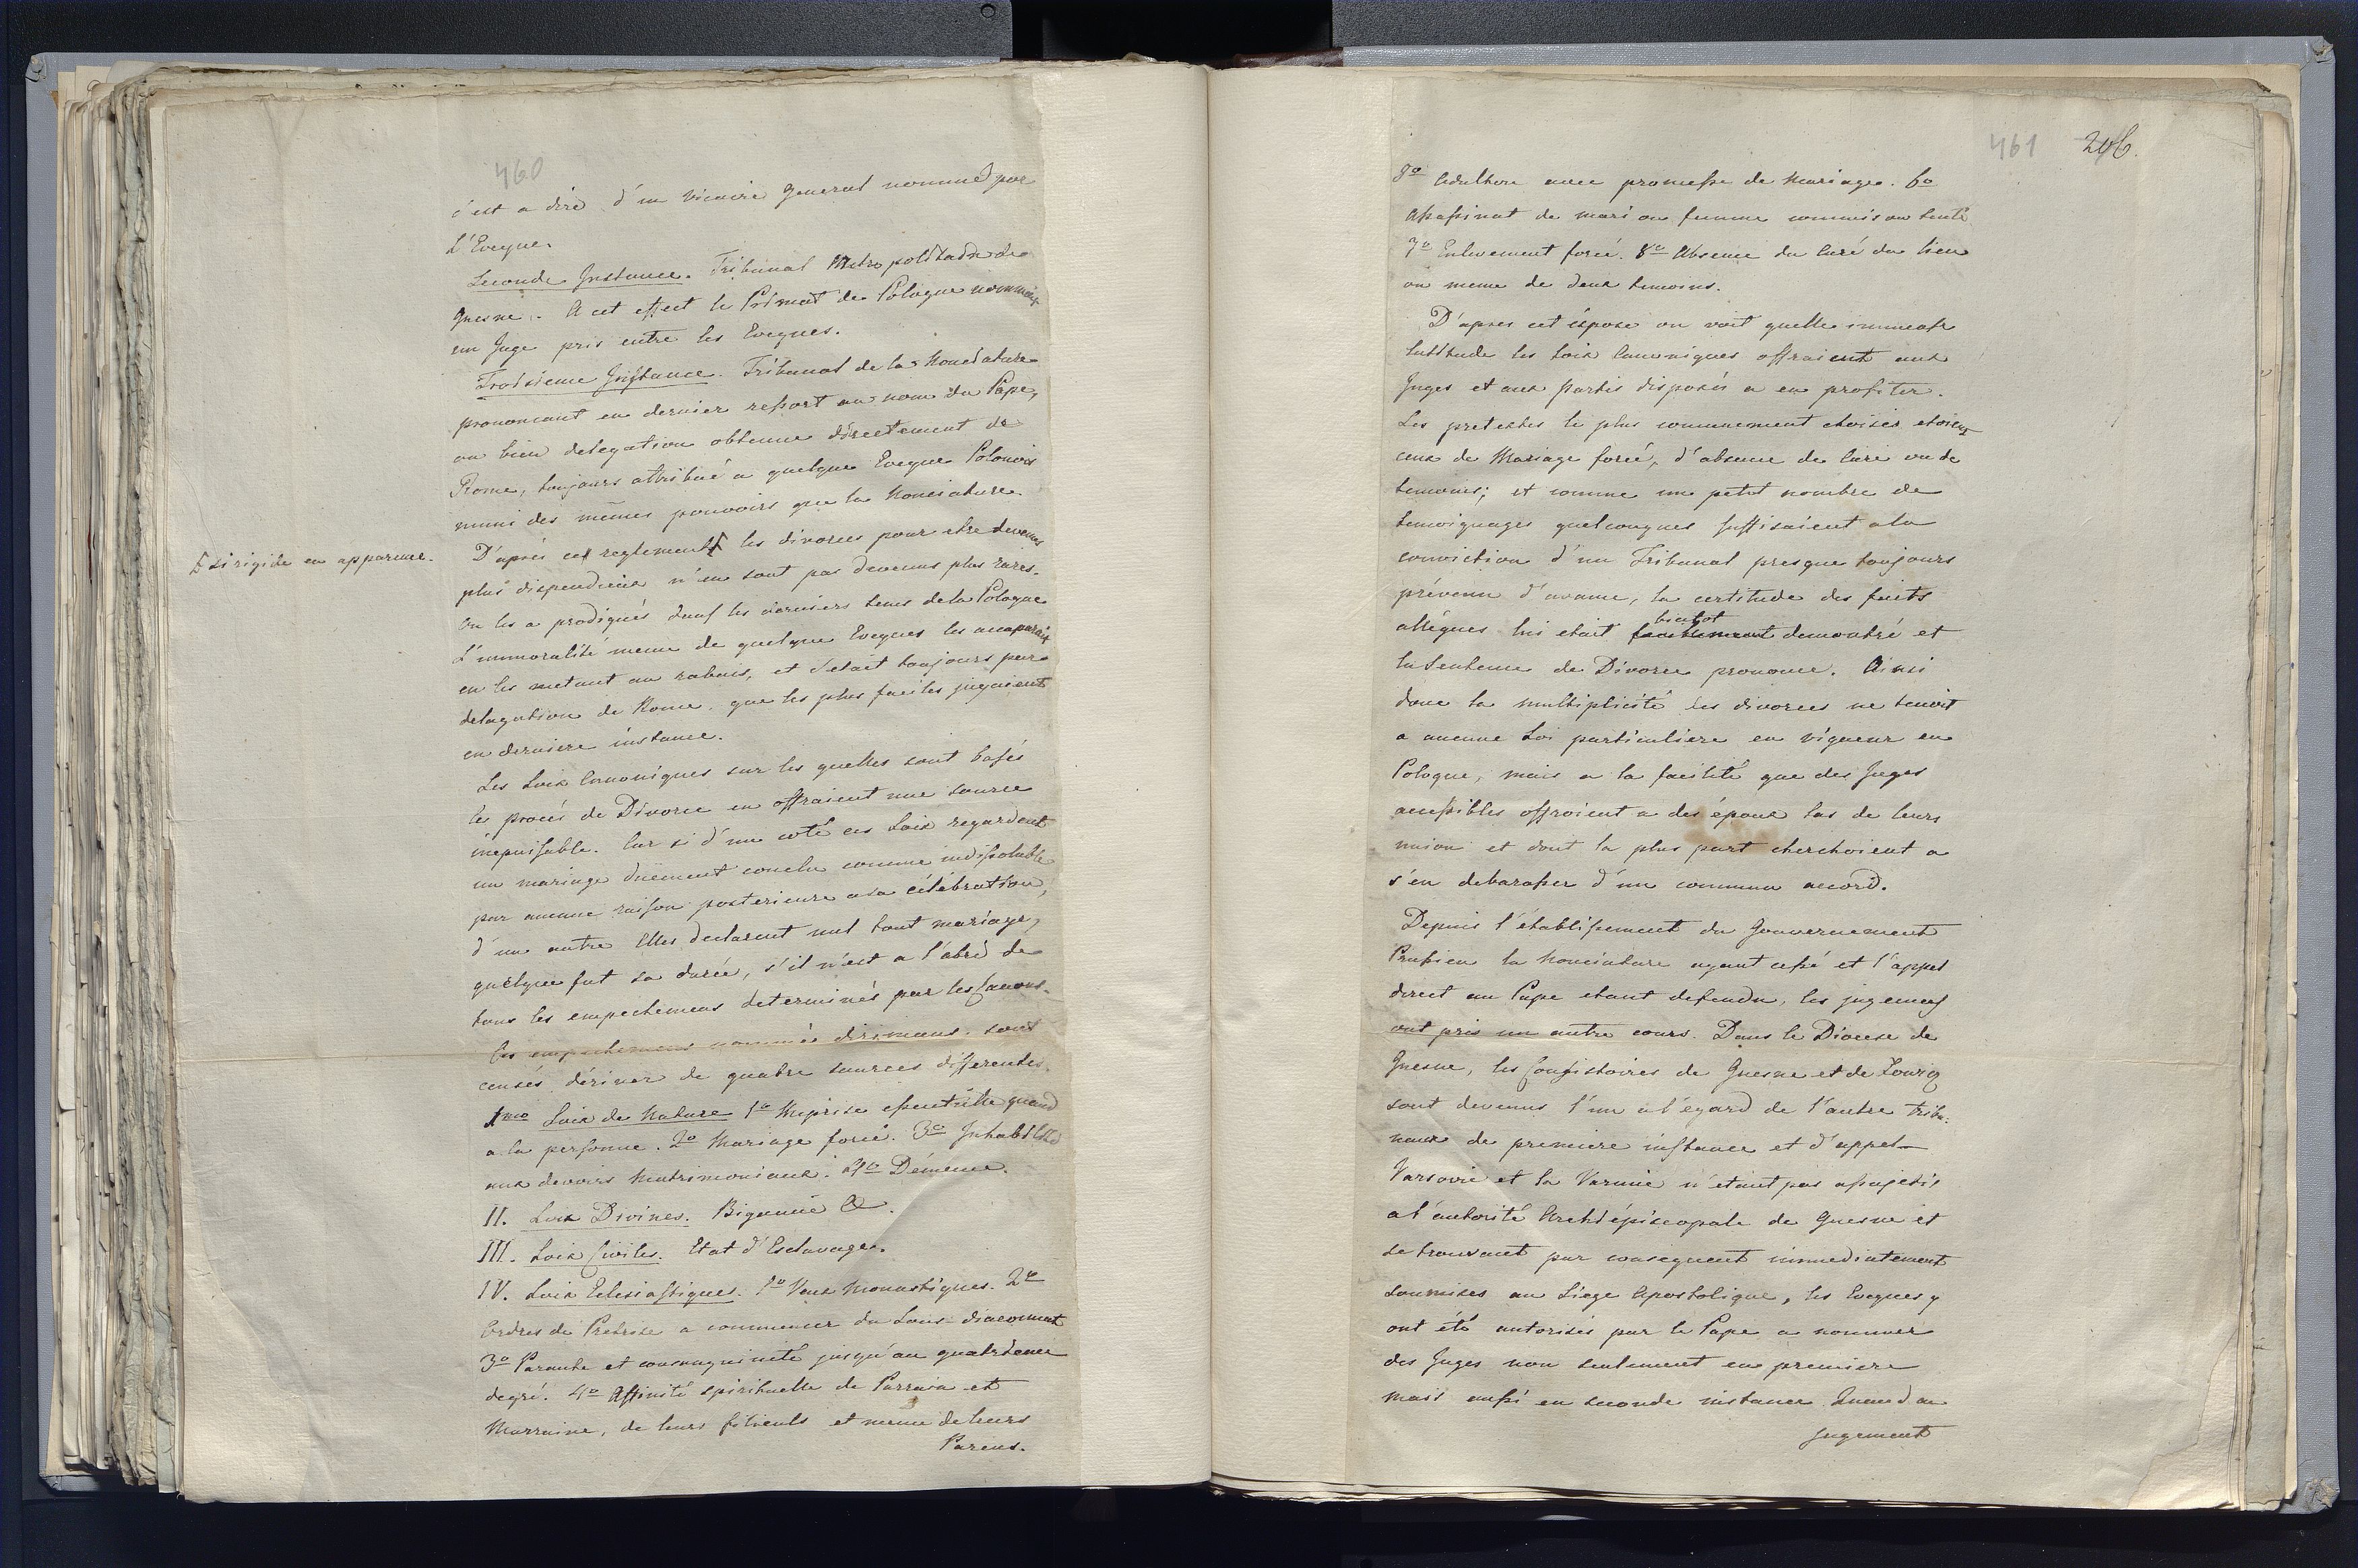 460
c'est a dire d'un Vicaire General nommé par
L'Eveque.
Seconde Instance. Tribunal Metropolitain de
Gnesne. A cet effect le Primat de Pologne nommait
un Juge pris entre les Eveques.
Troisieme Instance. Tribunal de la Nonciature
prononcant en dernier ressort au nom du Pape,
ou bien delegation obtenue directement de
Rome, toujours attribué a quelque Eveque Polonois
muni des mêmes pouvoirs que la Nonciature.
D'après ces reglements les divorces pour etre devenus
si rigide en apparence.
plus dispendieux n'en sont pas devenus plus rares.
On les a prodigués dans les derniers tems de la Pologne
L'immoralité meme de quelque Eveques les accaparait
en les metant au rabais, et c'etait toujours par
delegation de Rome que les plus faciles jugeaient
en derniere instance.
Les Loix Canoniques sur les quelles sont basés
les procés de Divorce en offraient une source
inepuisable. Car si d'un coté ces Loix regardent
un mariage duement conclu comme indissoluble
par aucune raison posterieure a sa célébration,
d'un autre Elles declarent nul tout mariage,
quelque fut sa durée, s'il n'est a l'abri de
tous les empechemens determinés par les Canons.
Ces empechemens nommés dirimans sont
censés dériver de quatre sources differentes.
1mo Loix de Nature 1o Meprise essentielle quand
a la personne. 2o Mariage forcé. 3o Inhabilité
aux devoirs Matrimoniaux. 4o Démence.
II. Loix Divines. Bigamie &.
III. Loix Civiles. Etat d'Esclavage.
IV. Loix Eclesiastiques. 1o Vœux Monastiques. 2o
Ordres de Pretrise a commencer du Sous-diaconnat
3o Parenté et consanguinité jusqu'au quatrieme
degré. 4o Affinité spirituelle de Parrain et
Marraine, de leurs filieuls et meme de leurs
Parens.
461 206.
5o Adultere avec promesse de Mariage. 6o
Assassinat de mari ou femme commis ou tenté
7o Enlevement forcé. 8o Absence du Curé du lieu
ou meme de deux temoins.
D'apres cet éxposé on voit quelle immense
latitude les Loix Canoniques offraient aux
Juges et aux Partis disposés a en profiter.
Les pretextes le plus communement choisis etoient
ceux de Mariage forcé, d'absence de Curé ou de
temoins; et comme un petit nombre de
temoignages quelconques suffisaient a la
conviction d'un Tribunal presque toujours
prévenu d'avance, la certitude des faits
bientot
allégués lui etait facilement demontré et
la sentence de Divorce prononcé. Ainsi
donc la multiplicité des divorces ne tenoit
a aucune Loi particuliere en vigueur en
Pologne, mais a la facilité que des Juges
accessibles offroient a des époux las de leurs
union et dont la plus part cherchoient a
s'en debarasser d'un commun accord.
Depuis l'établissement du Gouvernement
Prussien la Nonciature ayant cessé et l'appel
direct au Pape etant defendu, les jugemens
ont pris un autre cours. Dans le Diocese de
Gnesne, les Consistoires de Gnesne et de Lowicz
sont devenus l'un a l'egard de l'autre Tribu-
naux de premiere instance et d'appel
Varsovie et la Varmie n'etant pas assujetis
a l'autorité Archiépiscopale de Gnesne et
se trouvant par consequent immediatement
soumises au Siege Apostolique, les Eveques y
ont été autorisés par le Pape a nommer
des Juges non seulement en premiere
mais aussi en seconde instance. Quand au
Jugement